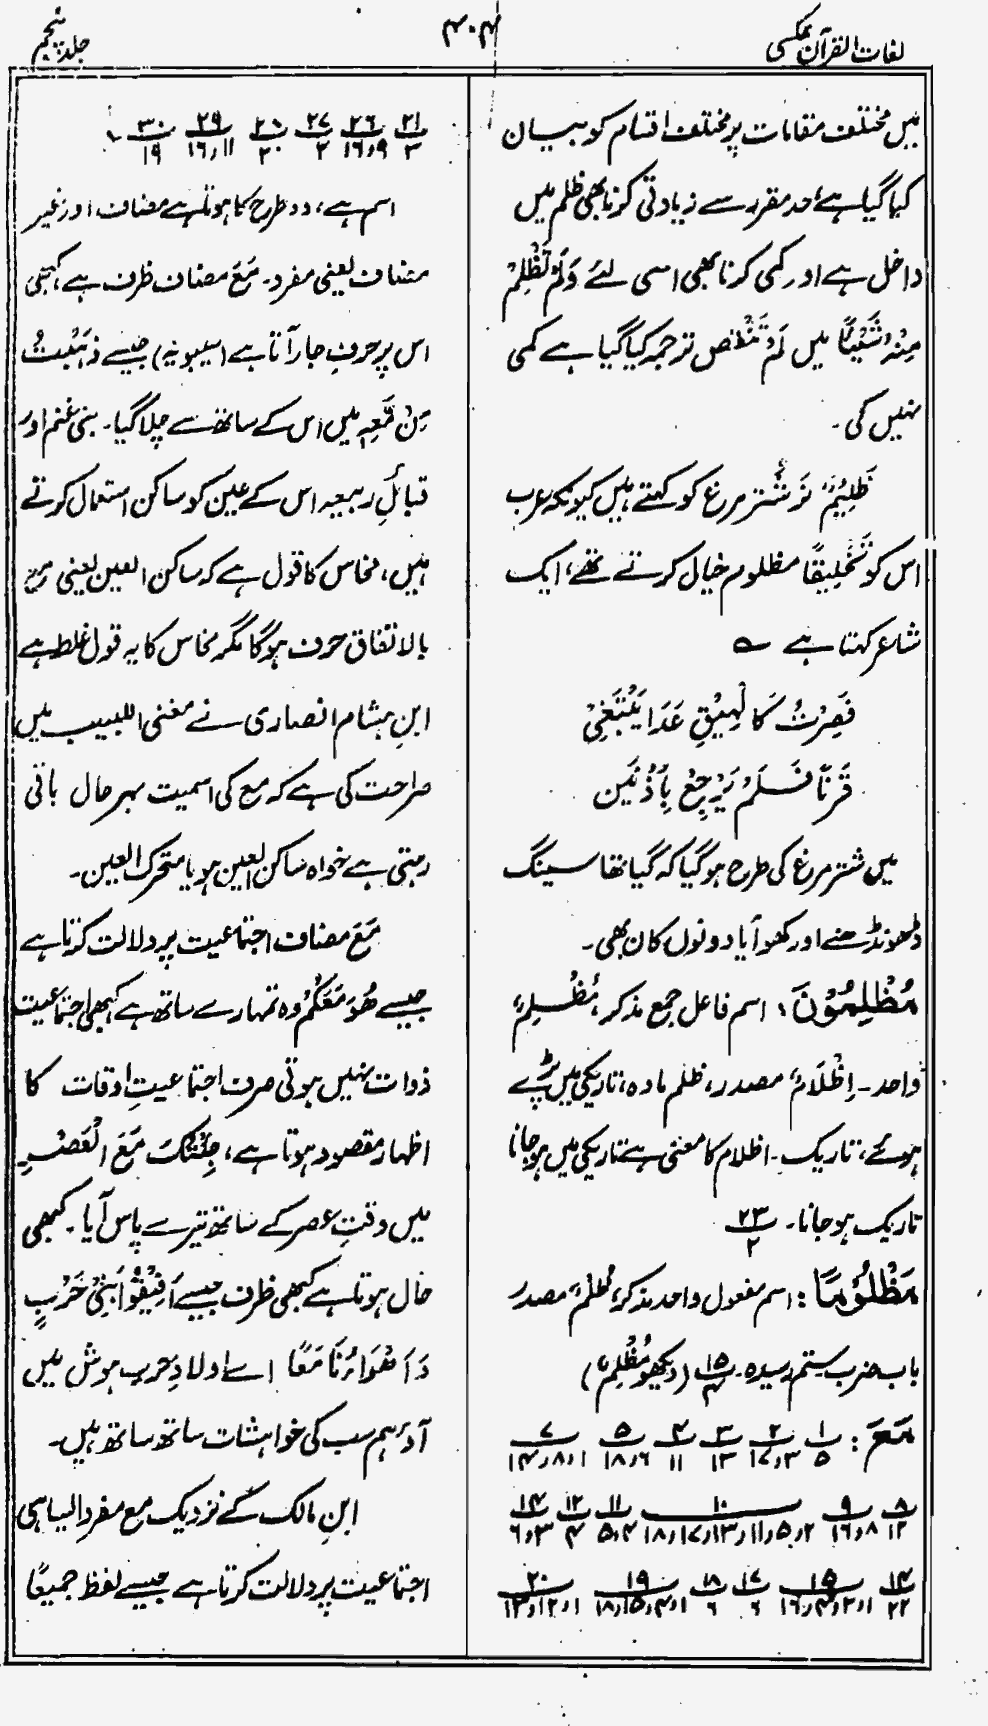 لغات القرآن عکسی
۴۰۴
جلد پنجم
میں مختلف مقامات پر مختلف اقسام کو بیان
کیا گیا ہے، حد مقررہ سے زیادتی کرنا بھی ظلم میں
داخل ہے اور کمی کرنا بھی اسی لئے وَلَمْ تَظْلِمْ
مِنْهُ شَيْئًا میں لَمْ تَنْقُصْ ترجمہ کیا گیا ہے کمی
نہیں کی۔
ظَلِيْمٌ نر شتر مرغ کو کہتے ہیں کیونکہ عرب
اس کو تَخْلِيقًا مظلوم خیال کرتے تھے، ایک
شاعر کہتا ہے ؎
فَصِرْتُ كَالْهِيْقِ غَدَا يَبْتَغِيْ
قَرْنًا فَلَمْ يَرْجِعْ بِأُذُنَيْنِ
میں شتر مرغ کی طرح ہو گیا کہ گیا تھا سینگ
ڈھونڈھنے اور کھو آیا دونوں کان بھی۔
مُظْلِمُوْنَ: اسم فاعل جمع مذکر، مُظْلِمٌ
واحد۔ اِظْلَامٌ مصدر، ظلم مادہ، تاریکی میں پڑے
ہوئے، تاریک۔ اظلام کا معنی ہے تاریکی میں ہو جانا
تاریک ہو جانا۔ ۲۳/۲
مَظْلُوْمًا: اسم مفعول واحد مذکر، ظُلْمٌ مصدر
باب ضرب۔ ستم رسیدہ۔ ۱۵/۴ (دیکھو مُظْلِمٌ)
مَعَ: ۱/۵ ۲/۳،۱۷ ۳/۱۳ ۴/۱۱ ۵/۶،۱۸ ۷/۱،۸،۱۴
۸/۱۲ ۹/۸،۱۶ ۱۰/۲،۵،۱۱،۱۳،۱۷،۱۸ ۱۱/۴،۵ ۱۲/۴ ۱۴/۳،۶
۱۴/۲۲ ۱۵/۱،۲،۴،۱۶ ۱۷/۶ ۱۸/۶ ۱۹/۱،۴،۱۵،۱۸ ۲۰/۱،۲،۱۳
۲۱/۳ ۲۶/۹،۱۶ ۲۷/۲ ۲۸/۲۰ ۲۹/۱۱،۱۶ ۳۰/۱۹
اسم ہے، دو طرح کا ہوتا ہے مضاف اور غیر
مضاف یعنی مفرد۔ مَعَ مضاف ظرف ہے، کبھی
اس پر حرفِ جار آتا ہے (سیبویہ) جیسے ذَهَبْتُ
مِنْ مَعِهٖ میں اس کے ساتھ سے چلا گیا۔ بنی غنم اور
قبائلِ ربیعہ اس کے عین کو ساکن استعمال کرتے
ہیں، نحاس کا قول ہے کہ ساکن العین یعنی مَعْ
بالاتفاق حرف ہوگا مگر نحاس کا یہ قول غلط ہے
ابنِ ہشام انصاری نے مغنی اللبیب میں
صراحت کی ہے کہ مع کی اسمیت بہر حال باقی
رہتی ہے خواہ ساکن العین ہو یا متحرک العین۔
مَعَ مضاف اجتماعیت پر دلالت کرتا ہے
جیسے هُوَ مَعَكُمْ وہ تمہارے ساتھ ہے، کبھی اجتماعیت
ذوات نہیں ہوتی صرف اجتماعیتِ اوقات کا
اظہار مقصود ہوتا ہے، جِئْتُكَ مَعَ الْعَصْرِ
میں وقتِ عصر کے ساتھ تیرے پاس آیا۔ کبھی
حال ہوتا ہے کبھی ظرف جیسے اَفِيْقُوْا بَنِيْ حَرْبٍ
وَاَهْوَاءُنَا مَعًا اے اولادِ حرب ہوش میں
آؤ، ہم سب کی خواہشات ساتھ ساتھ ہیں۔
ابنِ مالک کے نزدیک مع مفرد ایسا ہی
اجتماعیت پر دلالت کرتا ہے جیسے لفظ جمیعًا